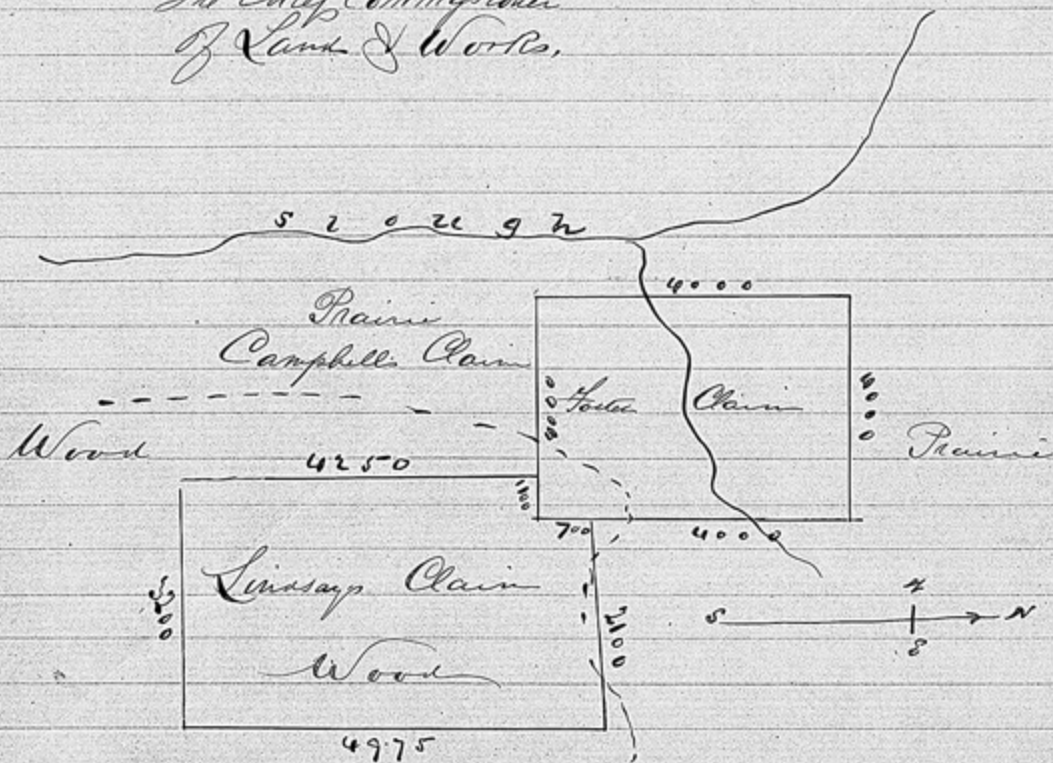 The Chief Commissioner
of Land & Works,
Slough
4000
Prairie
Campbells Claim
4000
Foster Claim
4000
Prairie
Wood
4250
1100
700
4000
Lindsays Claim
3200
2100
S N
Wood
4975